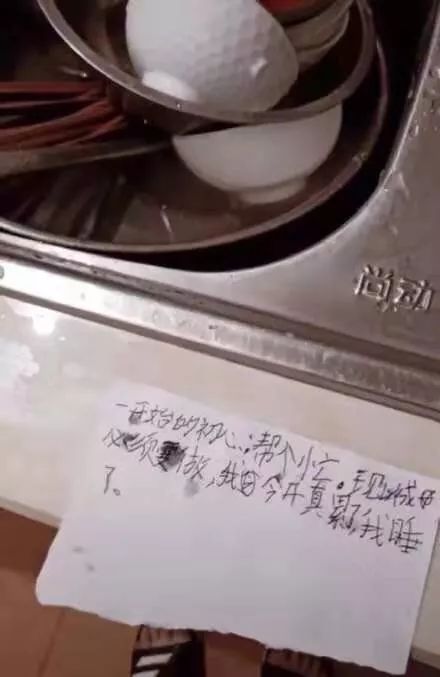 尚动
一开始的初心,帮个小忙。现成
必须要做,我今天真累,我睡
了。